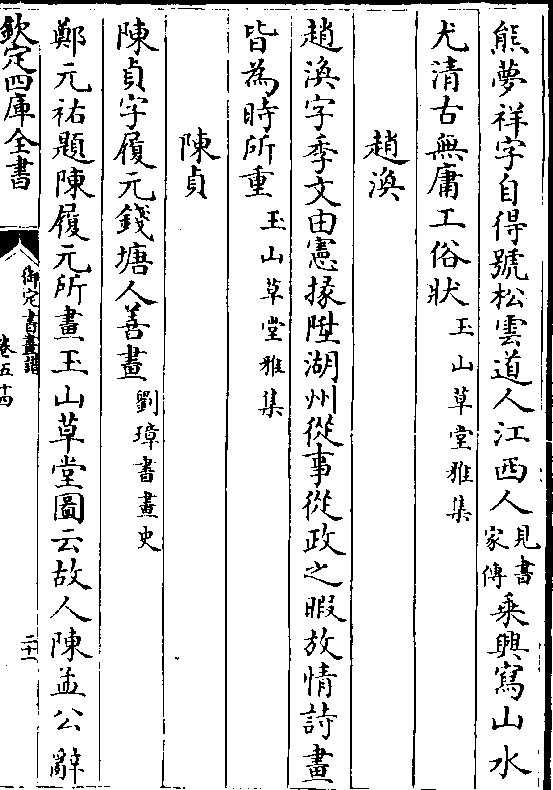 熊夢祥字自得號松雲道人江西人見書家傳乗興寫山水
尤清古無庸工俗狀玉山草堂雅集
趙渙
趙渙字季文由憲掾陞湖州從事從政之暇放情詩畫
皆為時所重玉山草堂雅集
陳貞
陳貞字履元錢塘人善畫劉璋書畫史
鄭元祐題陳履元所畫玉山草堂圖云故人陳孟公辭
欽定四庫全書
御定書畫譜
卷五十四
二十一